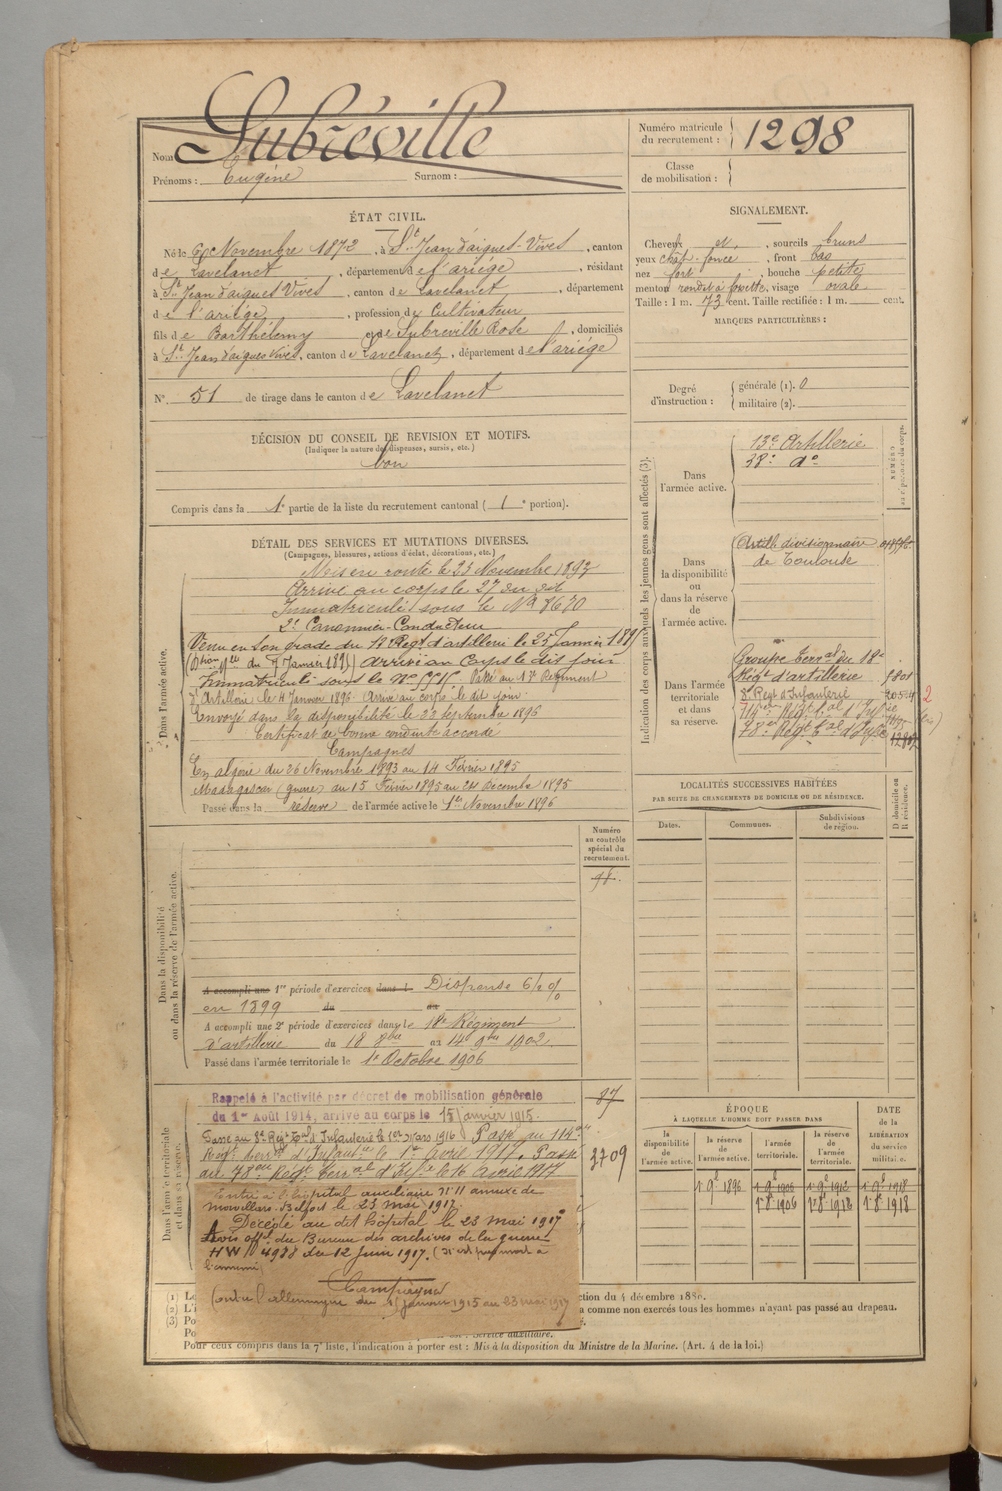 Nom Subréville
Prénoms : Eugène Surnom :
Numéro matricule du recrutement : 1298
Classe de mobilisation :
ÉTAT CIVIL.
Né le 6 Novembre 1872, à St Jean d'aigues-Vives, canton
de Lavelanet, département de l'ariége, résidant
à St Jean d'aigues Vives, canton de Lavelanet, département
de l'ariége, profession de Cultivateur
fils de Barthélemy et de Subreville Rose, domiciliés
à St Jean d'aigues vives, canton de Lavelanet, département de l'ariége
N° 51 de tirage dans le canton de Lavelanet
SIGNALEMENT.
Cheveux et, sourcils bruns
yeux chat. foncé, front bas
nez fort, bouche petite
menton rond et à fossette, visage ovale
Taille : 1 m. 73 cent. Taille rectifiée : 1 m. cent.
MARQUES PARTICULIÈRES :
Degré d'instruction : générale (1). 0
militaire (2).
DÉCISION DU CONSEIL DE REVISION ET MOTIFS.
(Indiquer la nature des dispenses, sursis, etc.)
bon
Compris dans la 1e partie de la liste du recrutement cantonal ( 1e portion).
DÉTAIL DES SERVICES ET MUTATIONS DIVERSES.
(Campagnes, blessures, actions d'éclat, décorations, etc.)
Dans l'armée active.
Mis en route le 23 Novembre 1893
Arrivé au corps le 27 du dit
Immatriculé sous le N° 8670
2e Canonnier-Conducteur
Venu en son grade du 13 Regt d'artillerie le 25 Janvier 1895
du 7 Janvier 1895) arrivé au Corps le dit jour
Immatriculé sous le N° Passé au Régiment
d'Artillerie le 4 Janvier 1896. Arrivé au corps le dit jour
Envoyé dans la disponibilité le 23 septembre 1896
Certificat de bonne conduite accordé
Campagnes
En algérie du 26 Novembre 1893 au 14 Février 1895
Madagascar (guerre) du 15 Février 1895 au 24 décembre 1895
Passé dans la réserve de l'armée active le 1er Novembre 1896
Indication des corps auxquels les jeunes gens sont affectés (3).
Dans l'armée active.
13e Artillerie
38e do
Dans la disponibilité ou dans la réserve de l'armée active.
Artill. divisionnaire
de Toulouse
Dans l'armée territoriale et dans sa réserve.
Groupe Terral du 18e
Régt d'artillerie 1801
8e Regt d'Infanterie
78e Régt
LOCALITÉS SUCCESSIVES HABITÉES
PAR SUITE DE CHANGEMENTS DE DOMICILE OU DE RÉSIDENCE.
Dates. Communes. Subdivisions de région. D domicile ou R résidence.
Dans la disponibilité ou dans la réserve de l'armée active.
Numéro au contrôle spécial du recrutement.
A accompli une 1re période d'exercices dans l Dispensé
en 1899 du au
A accompli une 2e période d'exercices dans le 18e Régiment
d'artillerie du 18 8bre au 14 9bre 1902.
Passé dans l'armée territoriale le 1er Octobre 1906
Dans l'armée territoriale et dans sa réserve.
Rappelé à l'activité par décret de mobilisation générale
du 1er Août 1914, arrivé au corps le 15 janvier 1915.
87
Passé au 8e Regt Tal d'Infanterie le 1er Mars 1916. Passé au 114e
Regt terrl d'Infanterie le 1er avril 1917. Passé
au 78e Regt Terral d'Infie le 16 avril 1917
3709
Entré à l'hôpital auxiliaire N° 11 annexe de
Morvillars-Belfort le 23 mai 1917
Décédé au dit hôpital le 23 mai 1917
Avis offl du Bureau des archives de la guerre
HW 4988 du 12 Juin 1917. (N'est pas mort à
l'ennemi)
Campagnes
Contre l'allemagne du 15 janvier 1915 au 23 mai 1917
ÉPOQUE
À LAQUELLE L'HOMME DOIT PASSER DANS
la disponibilité de l'armée active.
la réserve de l'armée active.
l'armée territoriale.
la réserve de l'armée territoriale.
DATE de la LIBÉRATION du service militaire.
1 9e 1896 1 9e 1906 1 9e 1912 1 9e 1918
1er 8e 1906 1er 8e 1918
ction du 4 décembre 1889.
a comme non exercés tous les hommes n'ayant pas passé au drapeau.
est : Service auxiliaire.
Pour ceux compris dans la 7e liste, l'indication à porter est : Mis à la disposition du Ministre de la Marine. (Art. 4 de la loi.)